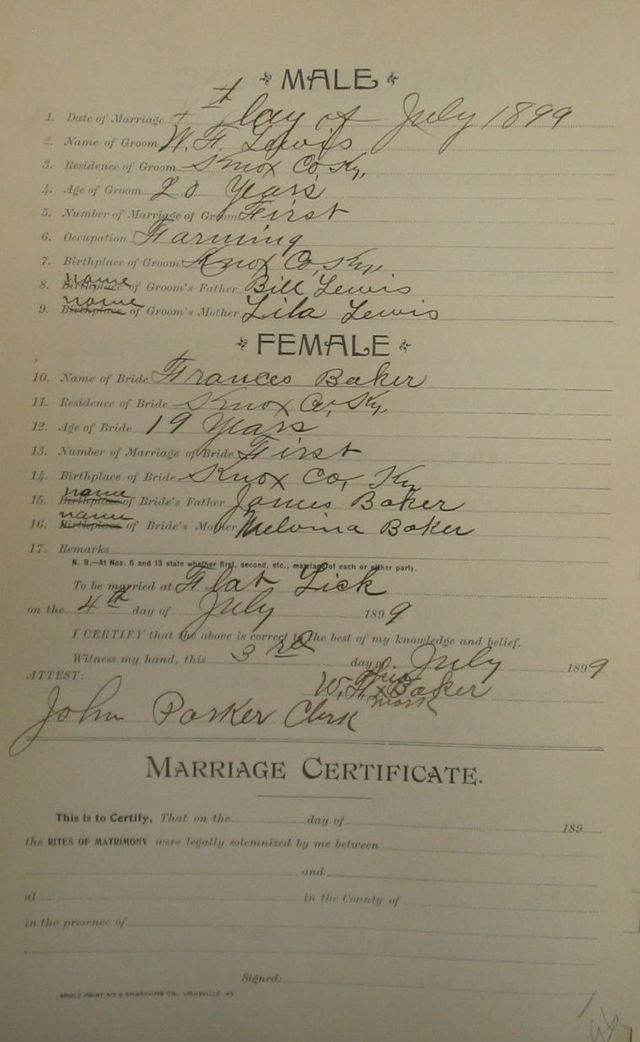 MALE
1. Date of Marriage 4th day of July 1899
2. Name of Groom W. H. Lewis
3. Residence of Groom Knox Co, Ky,
4. Age of Groom 20 Years
5. Number of Marriage of Groom First
6. Occupation Farming
7. Birthplace of Groom Knox Co, Ky,
name
8. Birthplace of Groom's Father Bill Lewis
name
9. Birthplace of Groom's Mother Lila Lewis
FEMALE
10. Name of Bride Frances Baker
11. Residence of Bride Knox Co, Ky,
12. Age of Bride 19 Years
13. Number of Marriage of Bride First
14. Birthplace of Bride Knox Co, Ky
name
15. Birthplace of Bride's Father James Baker
name
16. Birthplace of Bride's Mother Melvina Baker
17. Remarks
N. B.—At Nos. 5 and 13 state whether first, second, etc., marriage of each or either party.
To be married at Flat Lick
on the 4th day of July 1899
I CERTIFY that the above is correct to the best of my knowledge and belief.
Witness my hand, this 3rd day of July 1899
ATTEST:
his
W. H. x Baker
mark
John Parker Clerk
MARRIAGE CERTIFICATE.
This is to Certify, That on the day of 189
the RITES OF MATRIMONY were legally solemnized by me between
and
at in the County of
in the presence of
Signed:
PRINTING & ENGRAVING CO., LOUISVILLE, KY